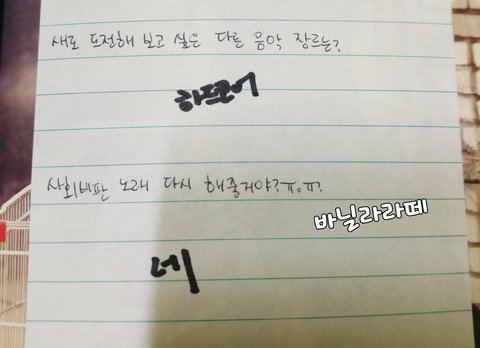 새로 도전해 보고 싶은 다른 음악 장르는?
하드코어
사회비판 노래 다시 해줄거야?ㅠoㅠ?
바닐라라떼
네